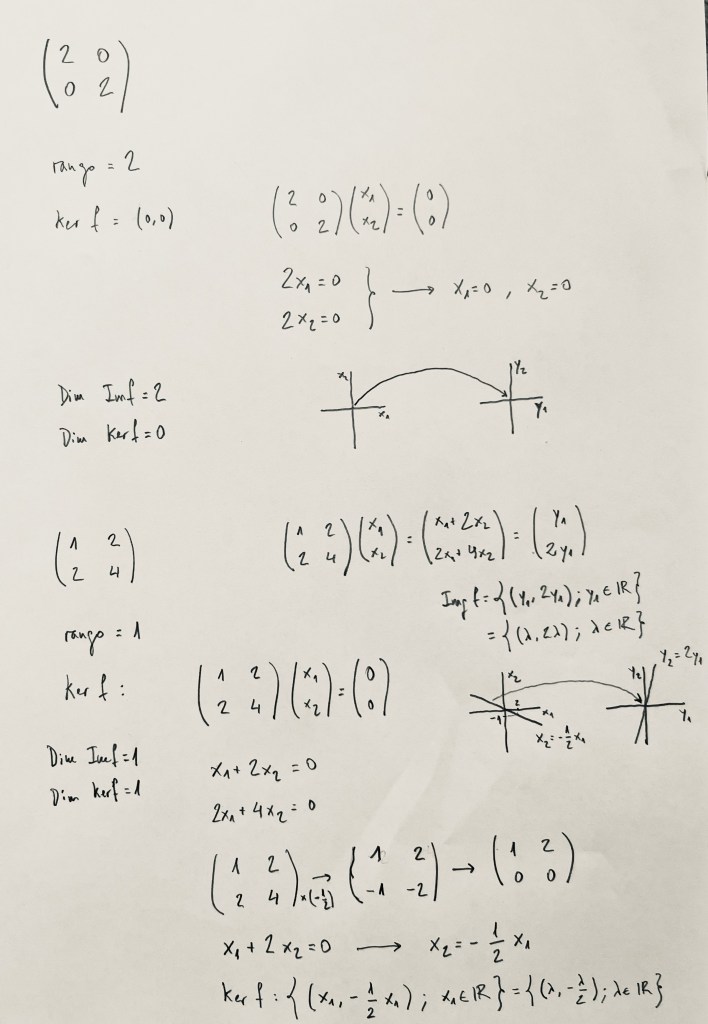 ( 2 0
0 2 )
rango = 2
Ker f = (0,0)
( 2 0
0 2 ) ( x₁
x₂ ) = ( 0
0 )
2x₁ = 0
2x₂ = 0 } ⟶ x₁=0 , x₂=0
Dim Imf = 2
Dim Kerf = 0
x₂
x₁
y₂
y₁
( 1 2
2 4 )
( 1 2
2 4 ) ( x₁
x₂ ) = ( x₁+2x₂
2x₁+4x₂ ) = ( y₁
2y₁ )
Img f = {(y₁, 2y₁) ; y₁ ∈ ℝ}
= {(λ, 2λ) ; λ ∈ ℝ}
rango = 1
Ker f :
( 1 2
2 4 ) ( x₁
x₂ ) = ( 0
0 )
x₂
2
-1
x₁
x₂ = -1/2 x₁
y₂
y₂ = 2y₁
y₁
Dim Imf = 1
Dim Kerf = 1
x₁ + 2x₂ = 0
2x₁ + 4x₂ = 0
( 1 2
2 4 ) ×(-1/2) → ( 1 2
-1 -2 ) → ( 1 2
0 0 )
x₁ + 2x₂ = 0 ⟶ x₂ = - 1/2 x₁
Ker f : {(x₁, -1/2 x₁) ; x₁ ∈ ℝ} = {(λ, -λ/2) ; λ ∈ ℝ}